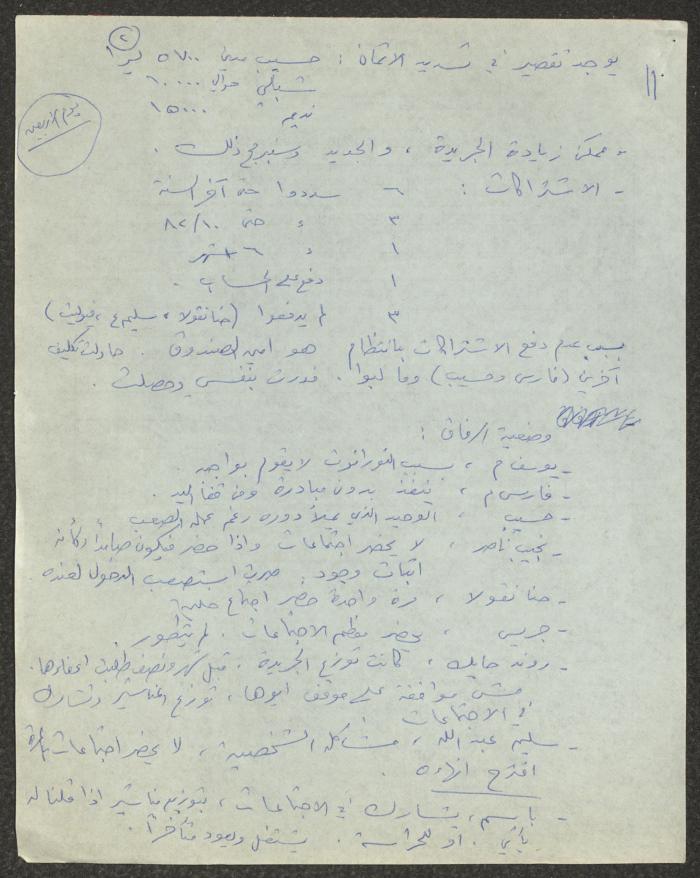 ٢
يوجد تقصير في تسديد الاثمان : حسيب دين ٥٧٠٠ ليرا
حوالي ١٠٠٠٠
نديم ١٥٠٠٠
11
- ممكن زيادة الجريدة ، والجديد وسنبرمج ذلك .
- الاشتراكات : ٦ سددوا حتى آخر السنة
٣ " حتى ٨٢/١٠
١ " ٦ اشهر
١ دفع على الحساب .
٣ لم يدفعوا (حنا نقولا ، سليم ع ، فوليت)
بسبب عدم دفع الاشتراكات بانتظام هو امين الصندوق . حاولت تكليف
آخرين (فارس وحسيب) وما لبوا . فدرت بنفسي وحصلت .
وضعية الرفاق :
- يوسف م ، بسبب لا يقوم بواجبه .
- فارس م ، ينفذ بدون مبادرة
- حسيب ، الوحيد الذي يملأ دوره رغم عمله الصعب
- نجيب ناصر ، لا يحضر اجتماعات واذا حضر فيكون صامداً وكأنه
اثبات وجود . استصعب الدخول لعنده .
- حنا نقولا ، مرة واحدة حضر اجتماع
- جريس ، يحضر معظم الاجتماعات . لم يتطور .
- روند ، كانت توزع الجريدة . قبل شهر ونصف طلبت اعفاءها .
مش موافقة على موقف ابوها ، توزع المناشير وتشارك
في الاجتماعات
- سليم عبدالله ، مشاكله الشخصية ، لا يحضر اجتماعات
اقترح انهاءه .
- باسم ، يشارك في الاجتماعات ، بتوزيع مناشير اذا قلنا له
يأتي . او للحراسة . يشتغل ويعود متأخراً .